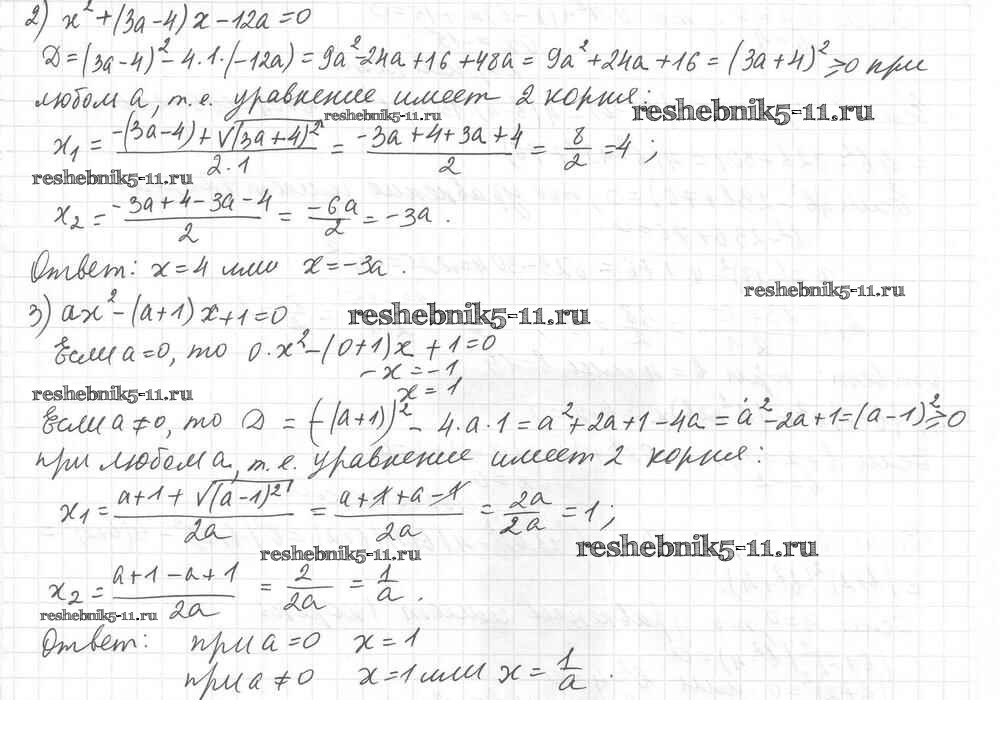 2) x² + (3a-4)x - 12a = 0
D = (3a-4)² - 4·1·(-12a) = 9a² - 24a + 16 + 48a = 9a² + 24a + 16 = (3a+4)² ≥ 0 при
любом a, т.е. уравнение имеет 2 корня:
reshebnik5-11.ru
reshebnik5-11.ru
x₁ = (-(3a-4) + √(3a+4)²)/(2·1) = (-3a+4+3a+4)/2 = 8/2 = 4;
reshebnik5-11.ru
x₂ = (-3a+4-3a-4)/2 = -6a/2 = -3a.
Ответ: x = 4 или x = -3a.
reshebnik5-11.ru
3) ax² - (a+1)x + 1 = 0
reshebnik5-11.ru
Если a = 0, то 0·x² - (0+1)x + 1 = 0
-x = -1
reshebnik5-11.ru
x = 1
Если a ≠ 0, то D = (-(a+1))² - 4·a·1 = a² + 2a + 1 - 4a = a² - 2a + 1 = (a-1)² ≥ 0
при любом a, т.е. уравнение имеет 2 корня:
x₁ = (a+1+√(a-1)²)/2a = (a+1+a-1)/2a = 2a/2a = 1;
reshebnik5-11.ru
reshebnik5-11.ru
x₂ = (a+1-a+1)/2a = 2/2a = 1/a.
reshebnik5-11.ru
Ответ: при a = 0 x = 1
при a ≠ 0 x = 1 или x = 1/a.